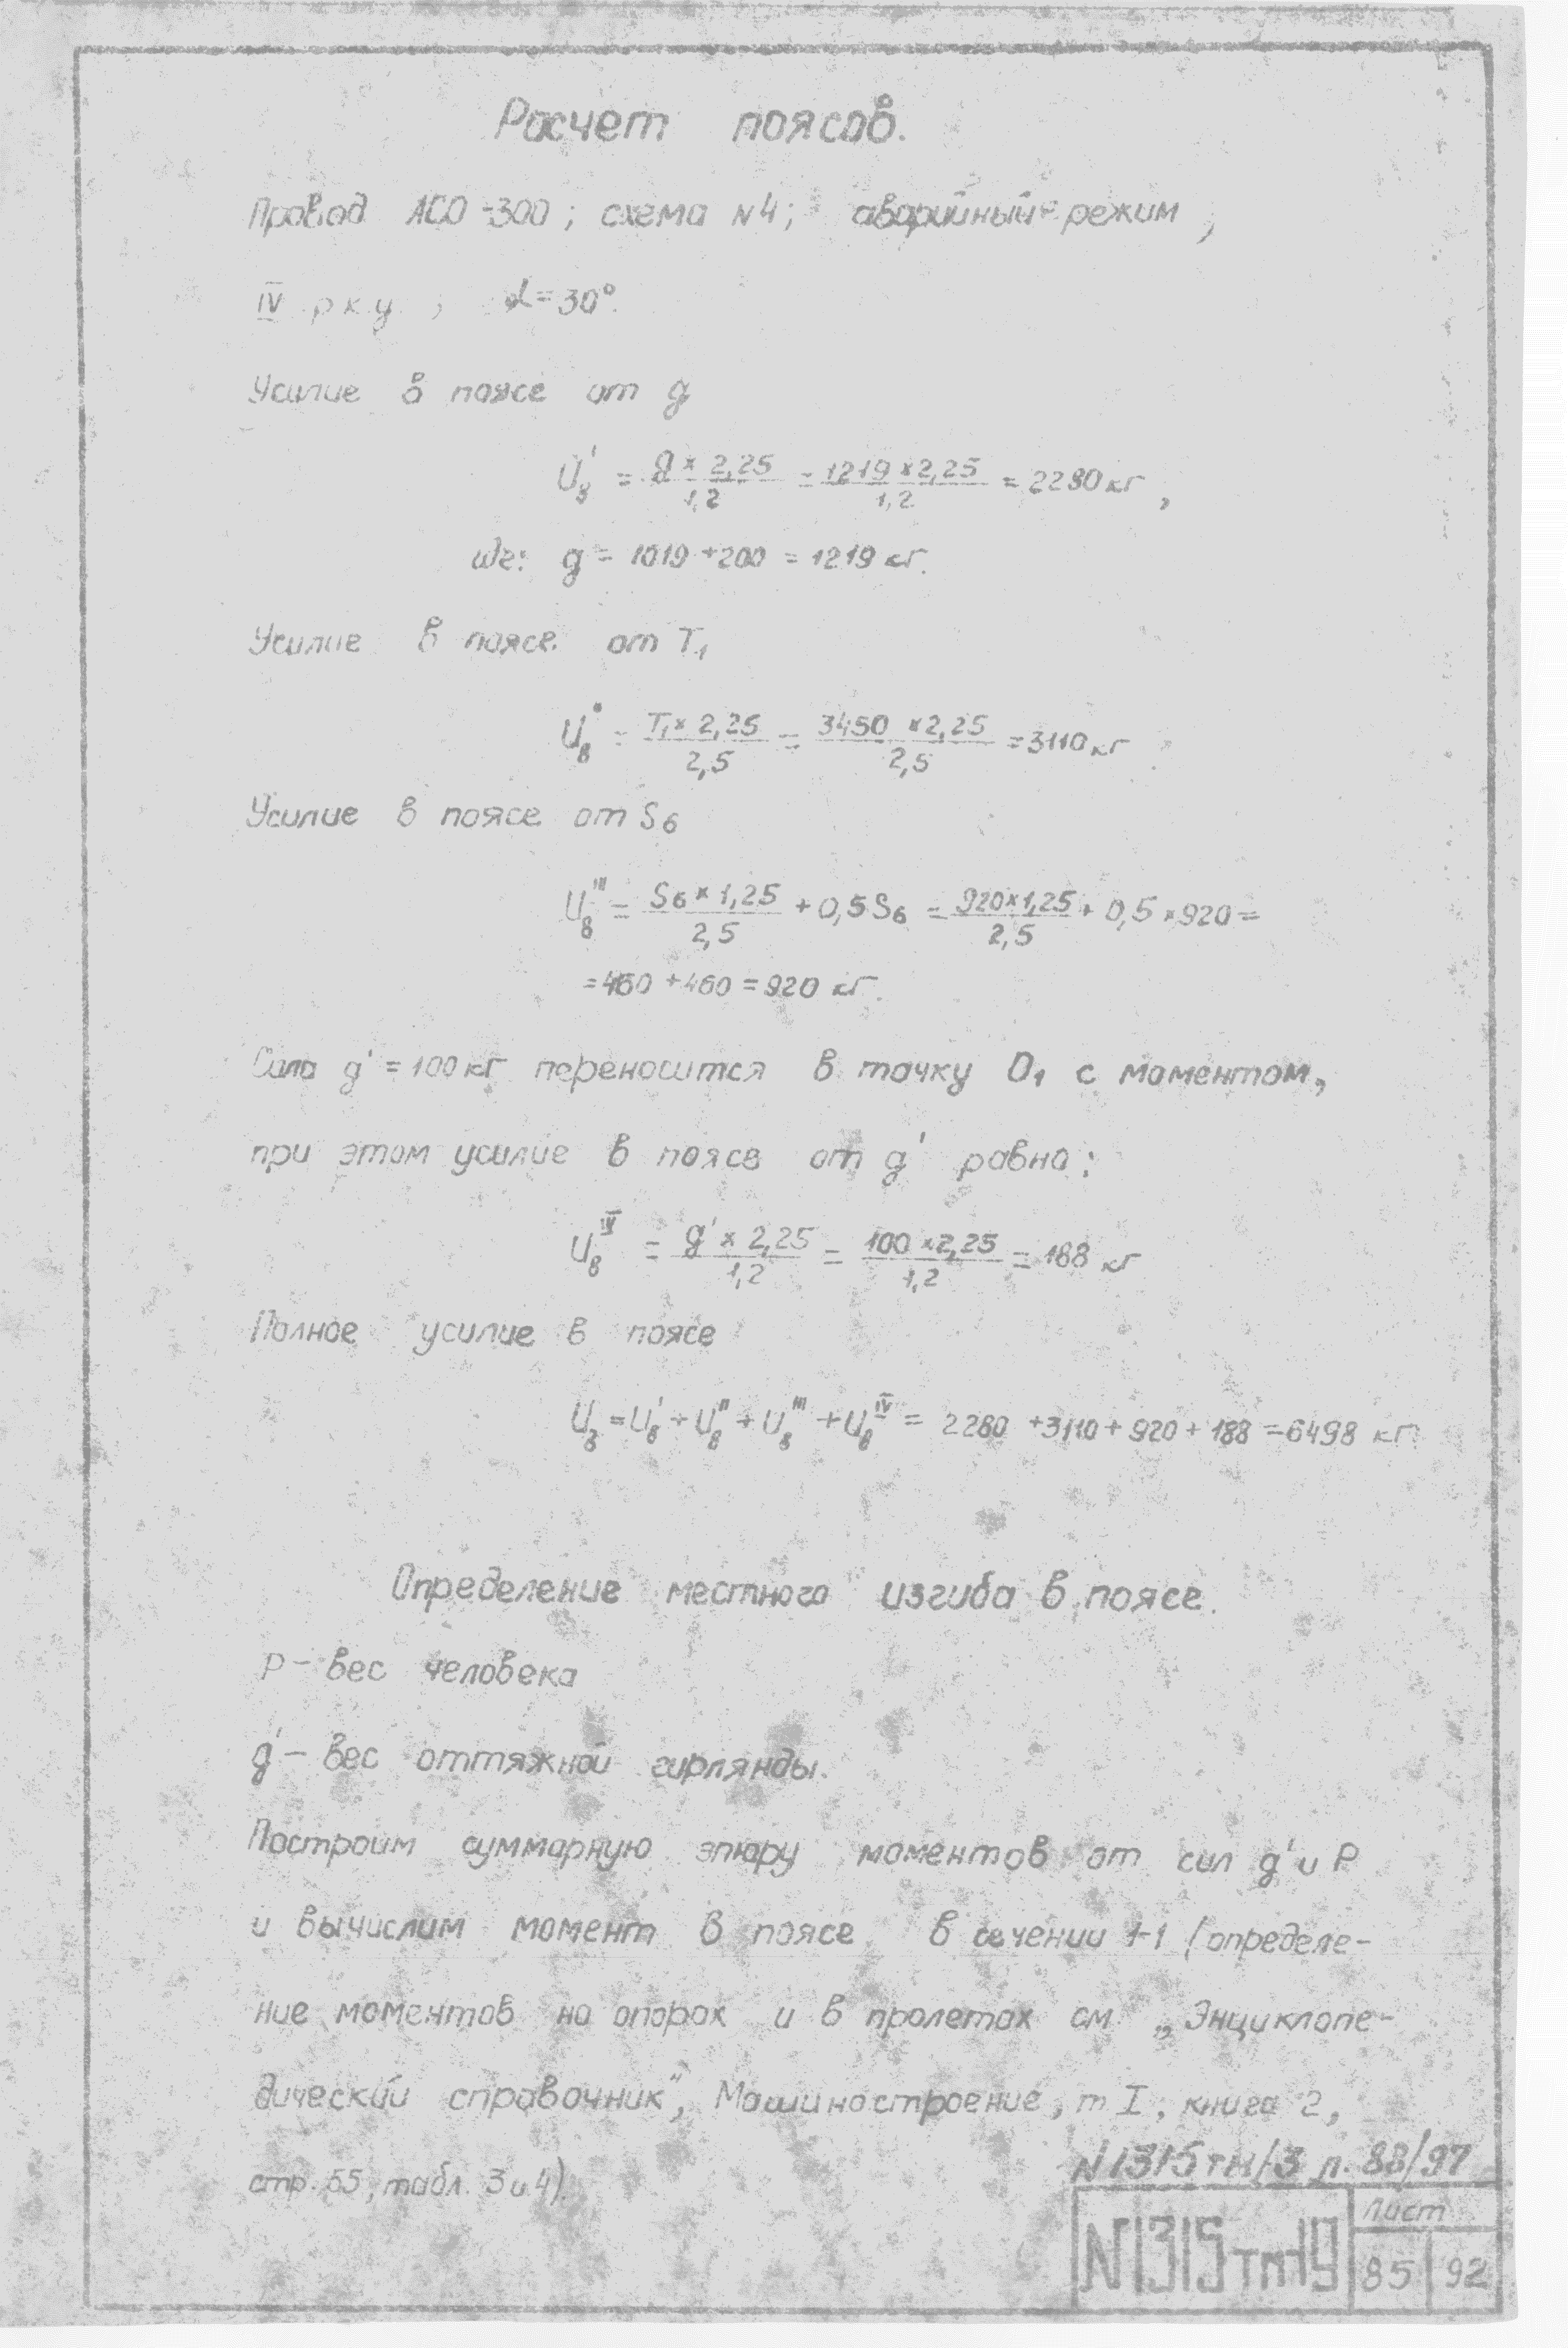 Расчет поясов.
Провод АСО-300; схема N4; аварийный режим,
IV рку; α=30°.
Усилие в поясе от g
U₈' = g × 2,25 / 1,2 = 1219 × 2,25 / 1,2 = 2280 кг,
где: g = 1019 + 200 = 1219 кг.
Усилие в поясе от T₁
U₈" = T₁ × 2,25 / 2,5 = 3450 × 2,25 / 2,5 = 3110 кг
Усилие в поясе от S₆
U₈''' = S₆ × 1,25 / 2,5 + 0,5 S₆ = 920 × 1,25 / 2,5 + 0,5 × 920 =
= 460 + 460 = 920 кг.
Сила g' = 100 кг переносится в точку О₁ с моментом,
при этом усилие в поясе от g' равно:
U₈ᴵⱽ = g' × 2,25 / 1,2 = 100 × 2,25 / 1,2 = 188 кг
Полное усилие в поясе
U₈ = U₈' + U₈" + U₈''' + U₈ᴵⱽ = 2280 + 3110 + 920 + 188 = 6498 кг
Определение местного изгиба в поясе.
P – вес человека
g' – вес оттяжной гирлянды.
Построим суммарную эпюру моментов от сил g' и P
и вычислим момент в поясе в сечении 1-1 (определе-
ние моментов на опорах и в пролетах см „Энциклопе-
дический справочник", Машиностроение, т I, книга 2,
стр. 55, табл. 3 и 4).
N1315тм/3 л. 88/97
N1315тм-
Лист
85 92